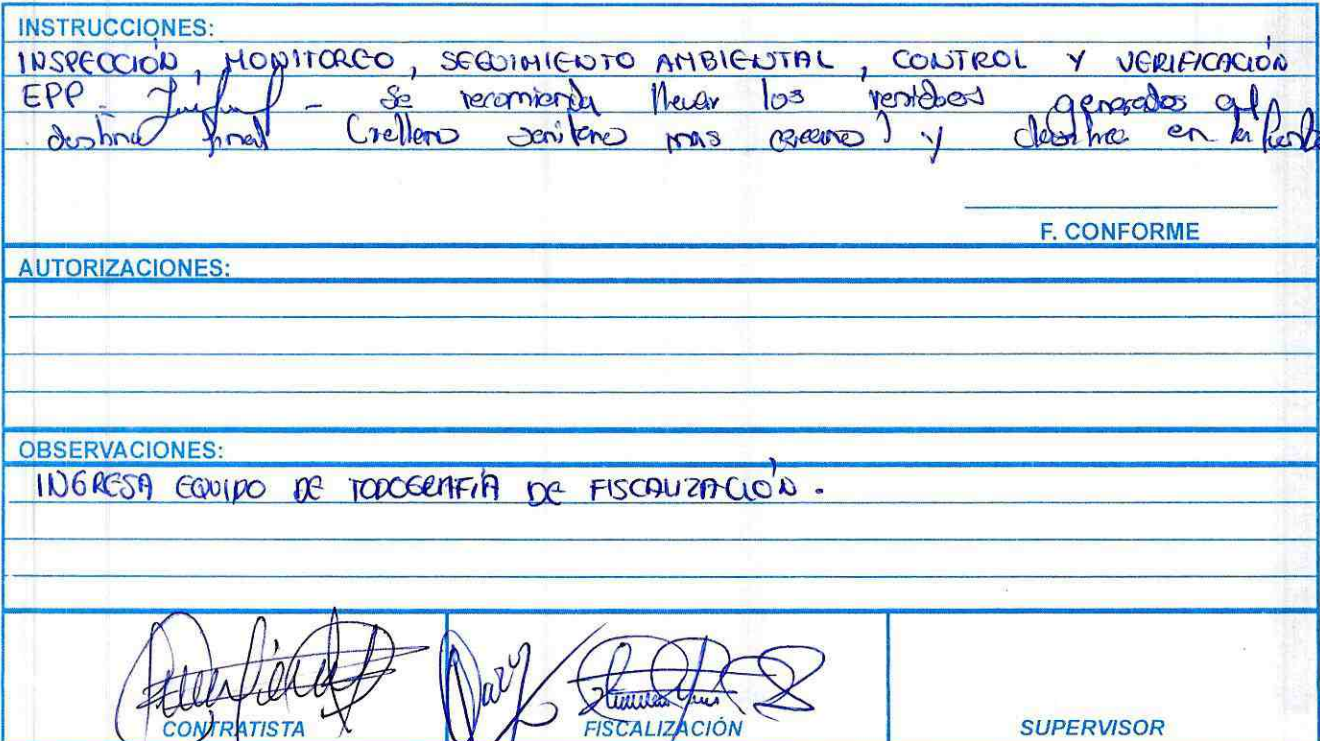 INSTRUCCIONES:
INSPECCIÓN, MONITOREO, SEGUIMIENTO AMBIENTAL, CONTROL Y VERIFICACIÓN
EPP - - Se recomienda llevar los generados al
destino final (relleno sanitario mas cercano) y en la
F. CONFORME
AUTORIZACIONES:
OBSERVACIONES:
INGRESA EQUIPO DE TOPOGRAFÍA DE FISCALIZACIÓN.
CONTRATISTA
FISCALIZACIÓN
SUPERVISOR